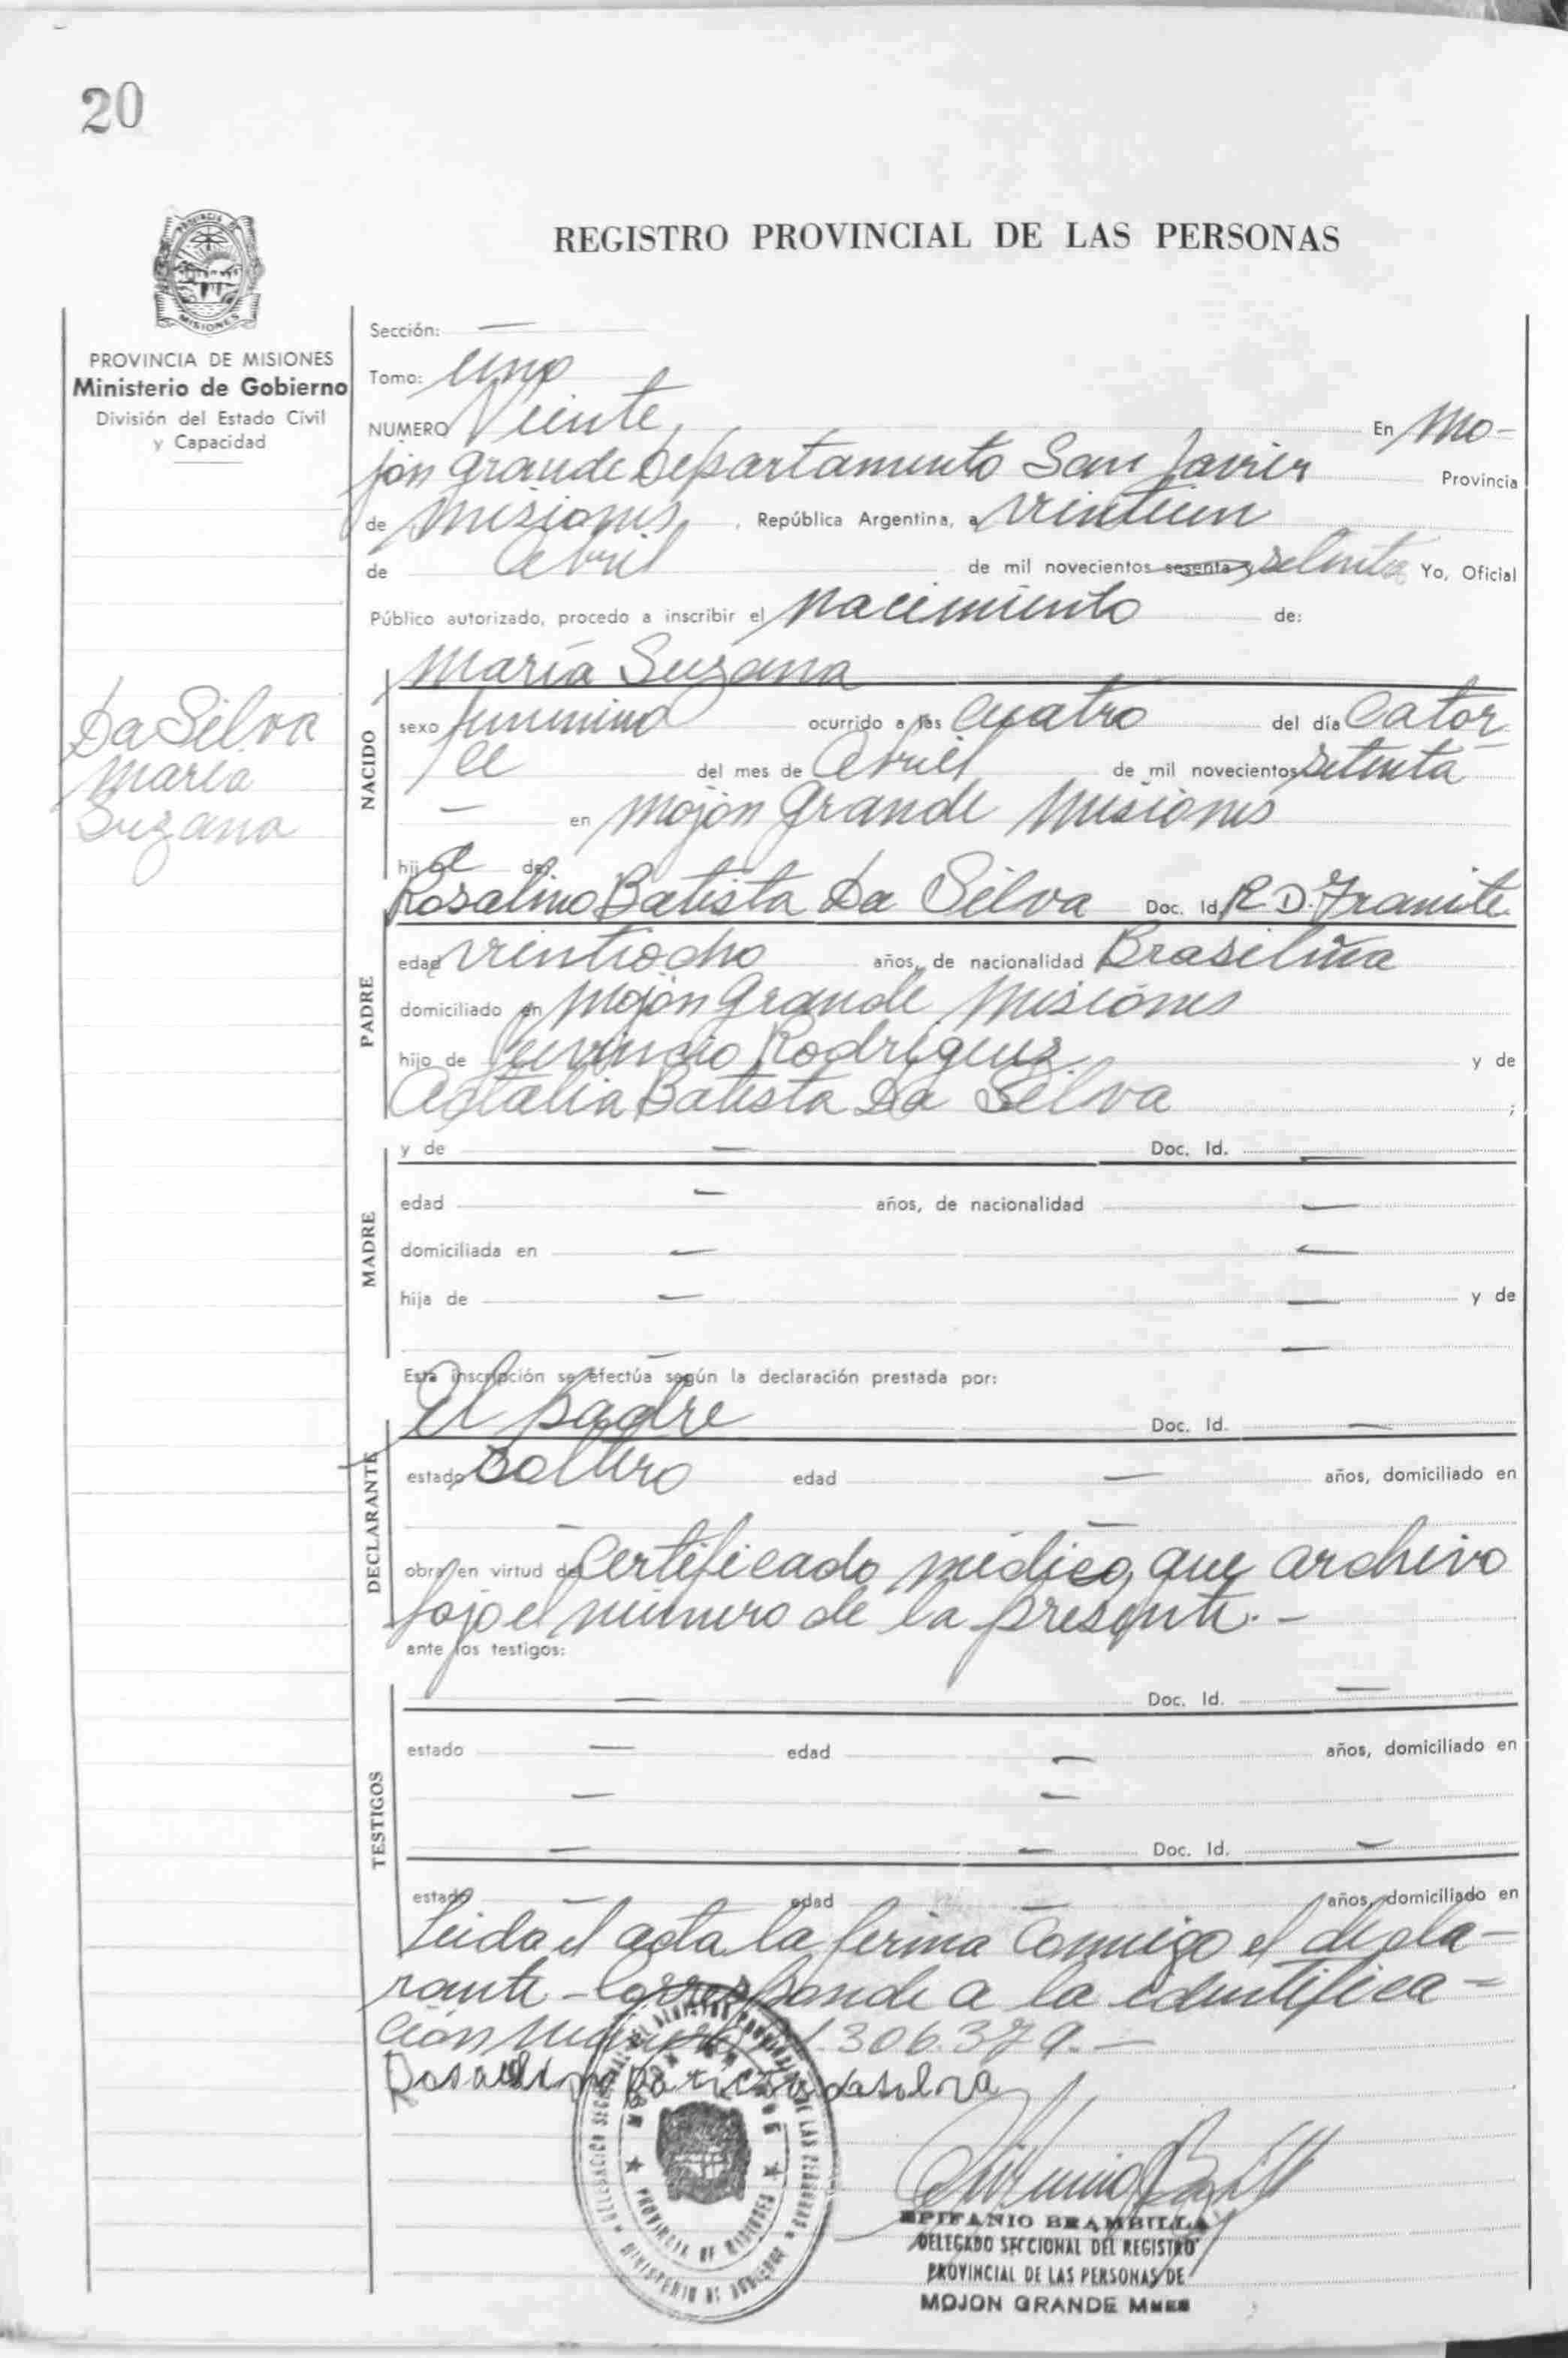 20
PROVINCIA DE
MISIONES
REGISTRO PROVINCIAL DE LAS PERSONAS
PROVINCIA DE MISIONES
Ministerio de Gobierno
División del Estado Civil
y Capacidad
Da Silva
María
Suzana
Sección: —
Tomo: Uno
NUMERO Veinte En Mo-
jón Grande Departamento San Javier Provincia
de Misiones, República Argentina, a veintiun
de Abril de mil novecientos sesenta y setenta Yo, Oficial
Público autorizado, procedo a inscribir el nacimiento de:
María Suzana
NACIDO
sexo femenino ocurrido a las cuatro del día Cator
ce del mes de Abril de mil novecientos setenta
— en Mojón Grande Misiones
hija de:
Rosalino Batista Da Silva Doc. Id. R.D. Tramite
PADRE
edad veintiocho años, de nacionalidad Brasileña
domiciliado en Mojón Grande Misiones
hijo de Rodríguez y de
Batista Da Silva ;
MADRE
y de — Doc. Id. —
edad — años, de nacionalidad —
domiciliada en — —
hija de — — y de
— —
Esta inscripción se efectúa según la declaración prestada por:
DECLARANTE
El padre Doc. Id. —
estado Soltero edad — años, domiciliado en
— —
obra en virtud de Certificado médico, que archivo
bajo el número de la presente. -
ante los testigos:
TESTIGOS
— Doc. Id. —
estado — edad — años, domiciliado en
— —
— — Doc. Id. —
estado — edad — años, domiciliado en
Leida el acta la firma Conmigo el decla-
rante - Corresponde a la identifica-
ción 306.379. —
Rosalino Batista da silva
DELEGACION SECCIONAL DEL REGISTRO PROVINCIAL DE LAS PERSONAS
MOJON GRANDE
PROVINCIA DE MISIONES
MINISTERIO DE GOBIERNO
EPIFANIO BRAMBILLA
DELEGADO SECCIONAL DEL REGISTRO
PROVINCIAL DE LAS PERSONAS DE
MOJON GRANDE Mnes